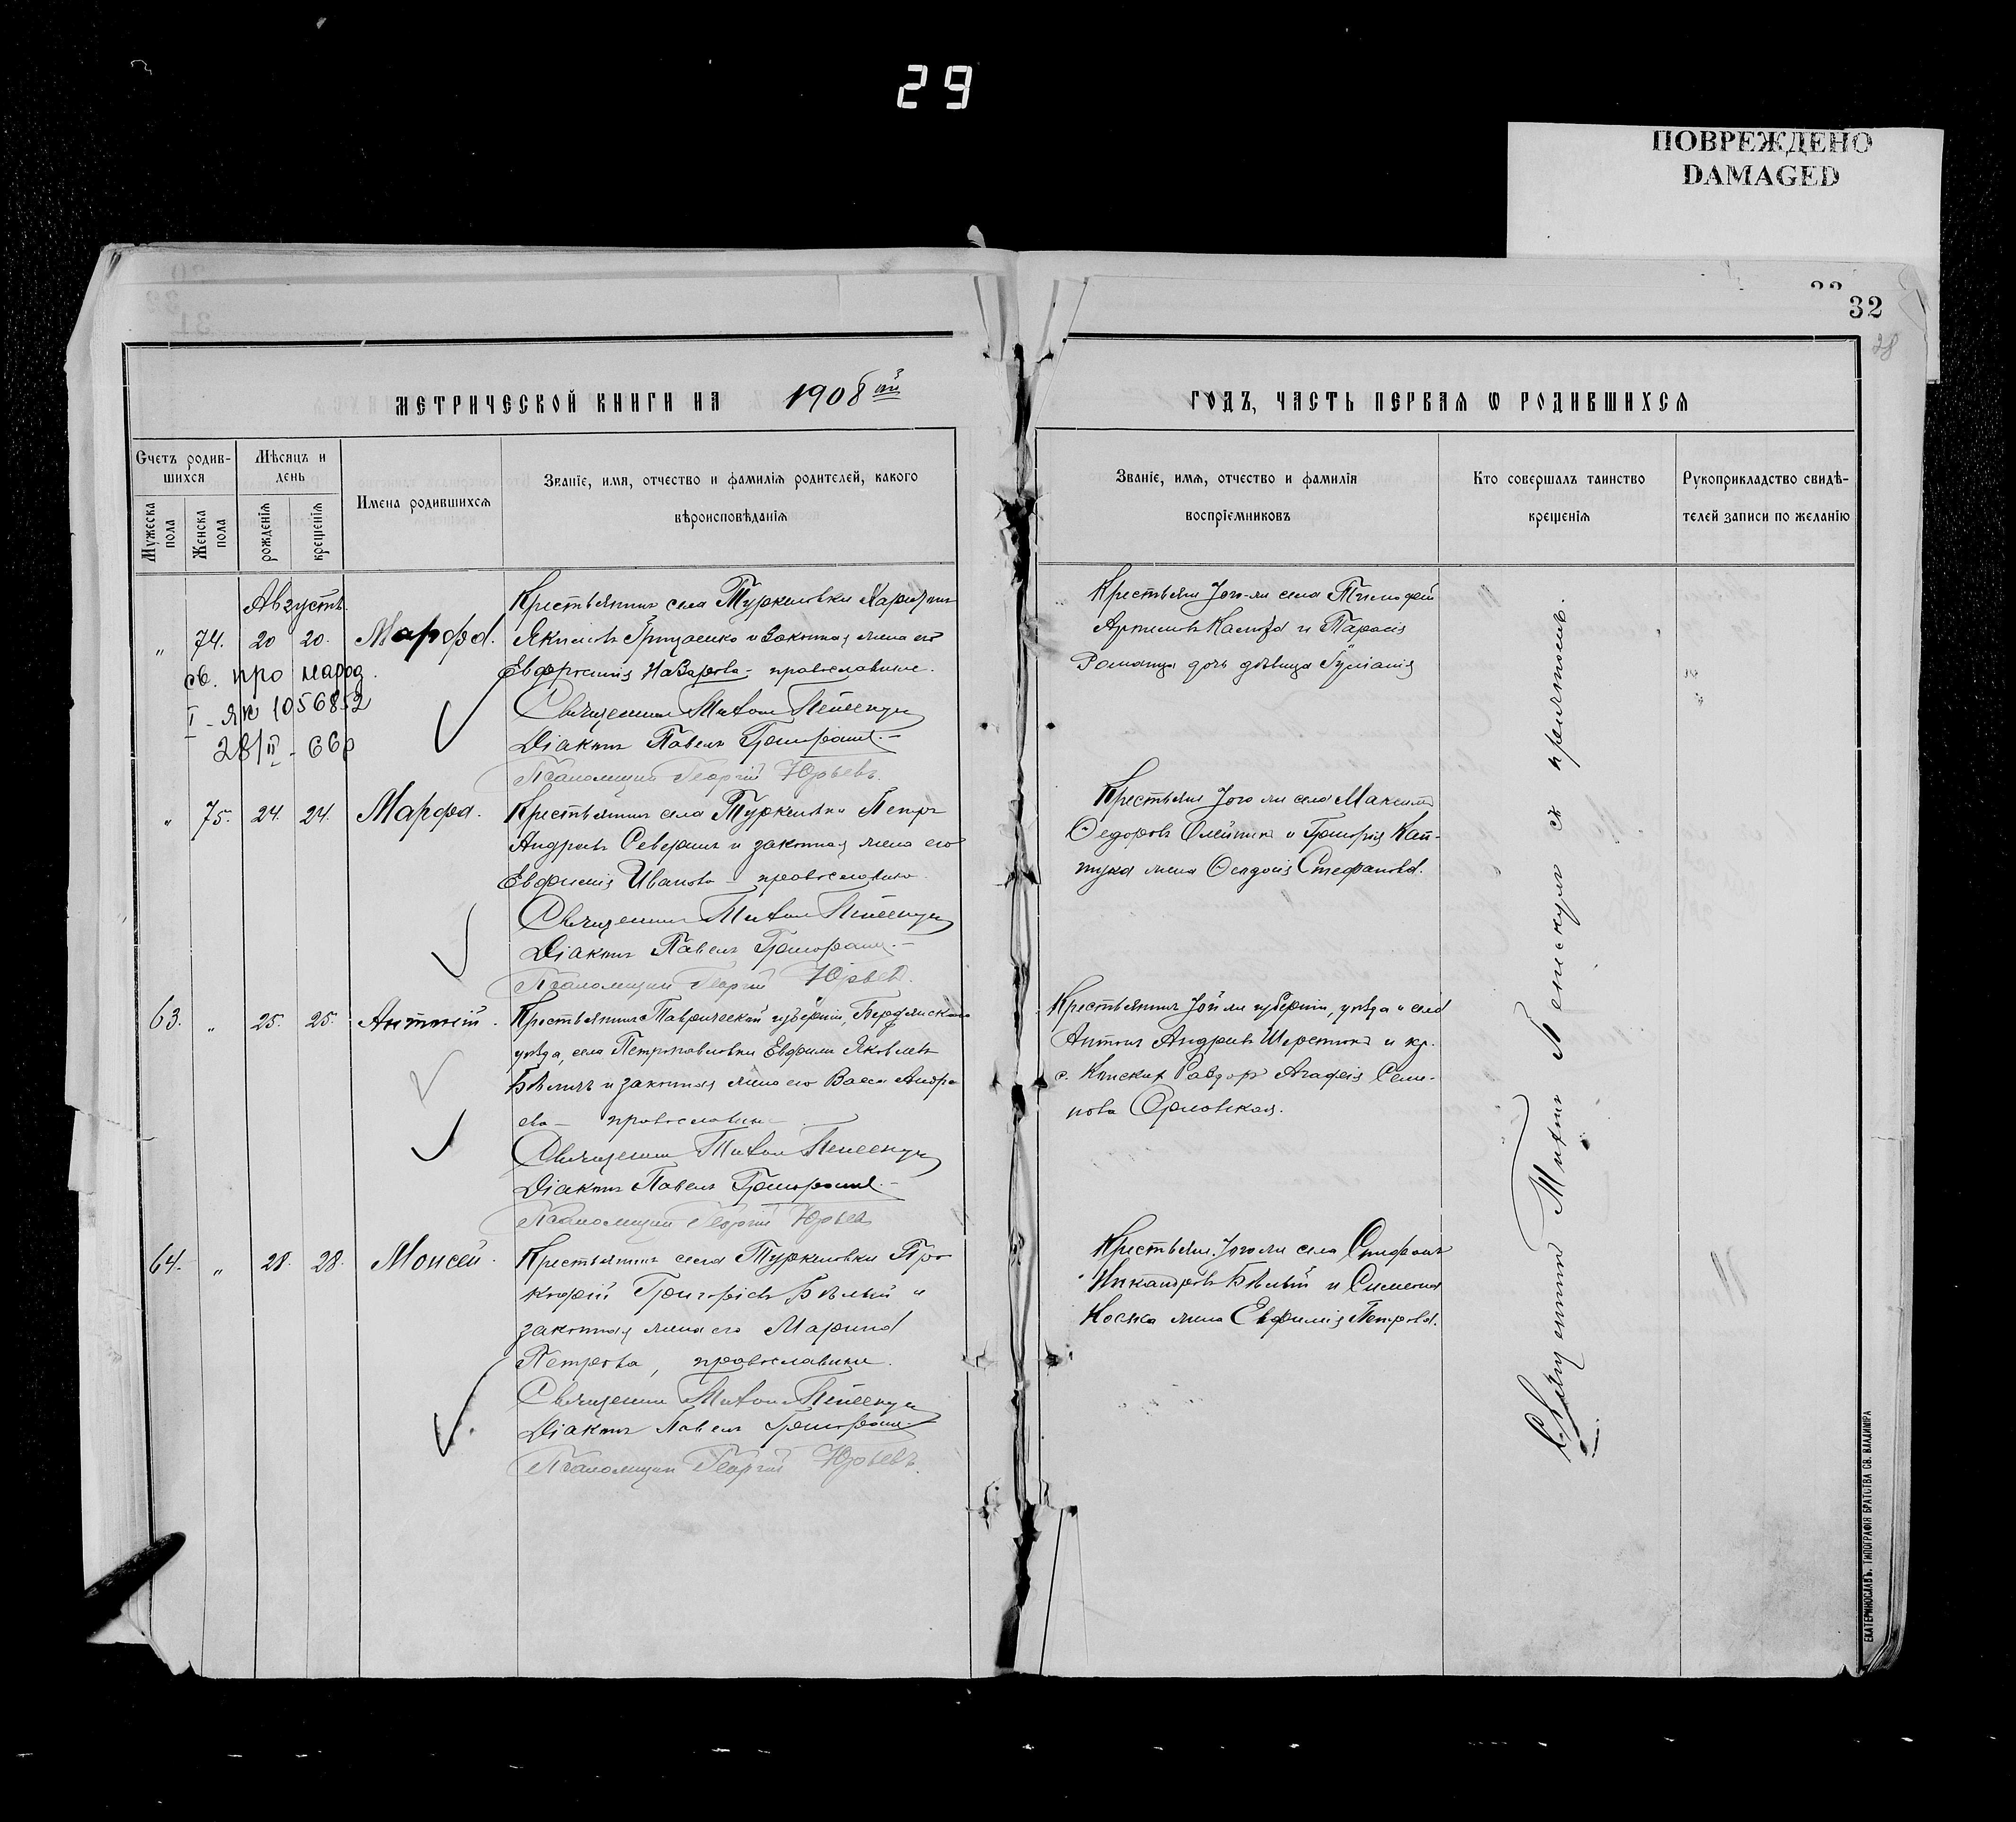 29
ПОВРЕЖДЕНО
DAMAGED
32
28
МЕТРИЧЕСКОЙ КНИГИ НА 1908 ГОДЪ, ЧАСТЬ ПЕРВАЯ Ѡ РОДИВШИХСЯ
Счетъ родившихся
Мужеска пола
Женска пола
Мѣсяцъ и день
рожденія
крещенія
Имена родившихся
Званіе, имя, отчество и фамилія родителей, какого вѣроисповѣданія
Званіе, имя, отчество и фамилія воспріемниковъ
Кто совершалъ таинство крещенія
Рукоприкладство свидѣтелей записи по желанію
Августъ
„ 74. 20 20. Марфа.
Крестьянинъ села Туркеновки Харитонъ
Якимовъ Грицаенко и законная жена его
Евфросинія Назарова православные.
Священникъ Тихонъ
Діаконъ Павелъ
Псаломщикъ Георгій Юрьевъ.
св. про народ.
I - ЯК 1056852
Крестьяне того-же села Тимофей
и Параскева
дочь дѣвица
„ 75. 24. 24. Марфа.
Крестьянинъ села Туркеновки Петръ
Андреевъ и законная жена его
Евфимія Иванова православные
Священникъ Тихонъ
Діаконъ Павелъ
Псаломщикъ Георгій Юрьевъ.
Крестьяне того же села Максимъ
Ѳедоровъ Олейникъ и Григорія Кап-
жена Ѳеодосія Стефанова.
63. „ 25. 25. Антоній.
Крестьянинъ Таврической губерніи, Бердянскаго
уѣзда, села Петропавловки Евфимъ Яковлевъ
и законная жена его Васса Андре-
ева православные
Священникъ Тихонъ
Діаконъ Павелъ
Псаломщикъ Георгій Юрьевъ
Крестьянинъ той же губерніи, уѣзда и села
Антонъ Андреевъ Шерстюкъ и кр.
Раздоръ Агафія Семе-
нова Орловская.
64. „ 28. 28. Моисей.
Крестьянинъ села Туркеновки Про-
кофій Григорьевъ Бѣлый и
законная жена его Марина
Петрова, православные.
Священникъ Тихонъ
Діаконъ Павелъ
Псаломщикъ Георгій Юрьевъ.
Крестьяне того же села Стефанъ
Никаноровъ Бѣлый и Симеона
жена Евфимія Петрова.
Священникъ Тихонъ съ причтомъ.
ЕКАТЕРИНОСЛАВЪ. ТИПОГРАФІЯ БРАТСТВА СВ. ВЛАДИМІРА